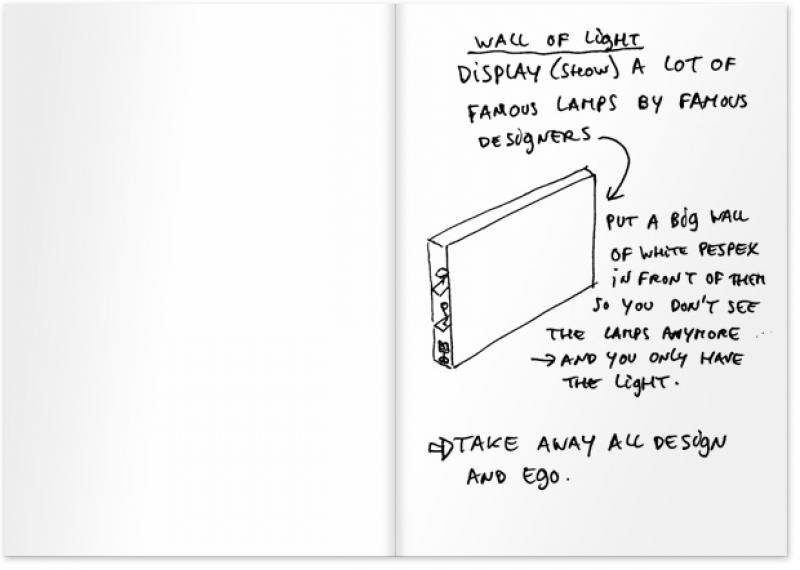 WALL OF LIGHT
DISPLAY (SHOW) A LOT OF
FAMOUS LAMPS BY FAMOUS
DESIGNERS
PUT A BIG WALL
OF WHITE PESPEX
IN FRONT OF THEM
SO YOU DON'T SEE
THE LAMPS ANYMORE ...
→ AND YOU ONLY HAVE
THE LIGHT.
⇒ TAKE AWAY ALL DESIGN
AND EGO.